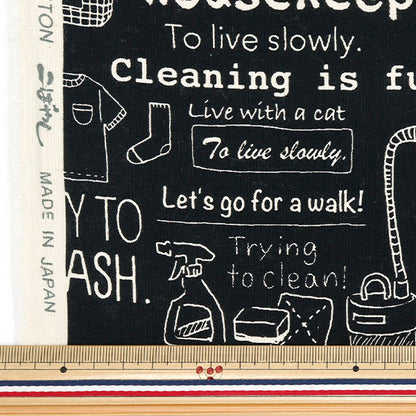 To live slowly.
Cleaning is
Live with a cat
To live slowly.
Let's go for a walk!
TO
Trying
to clean!
MADE IN JAPAN